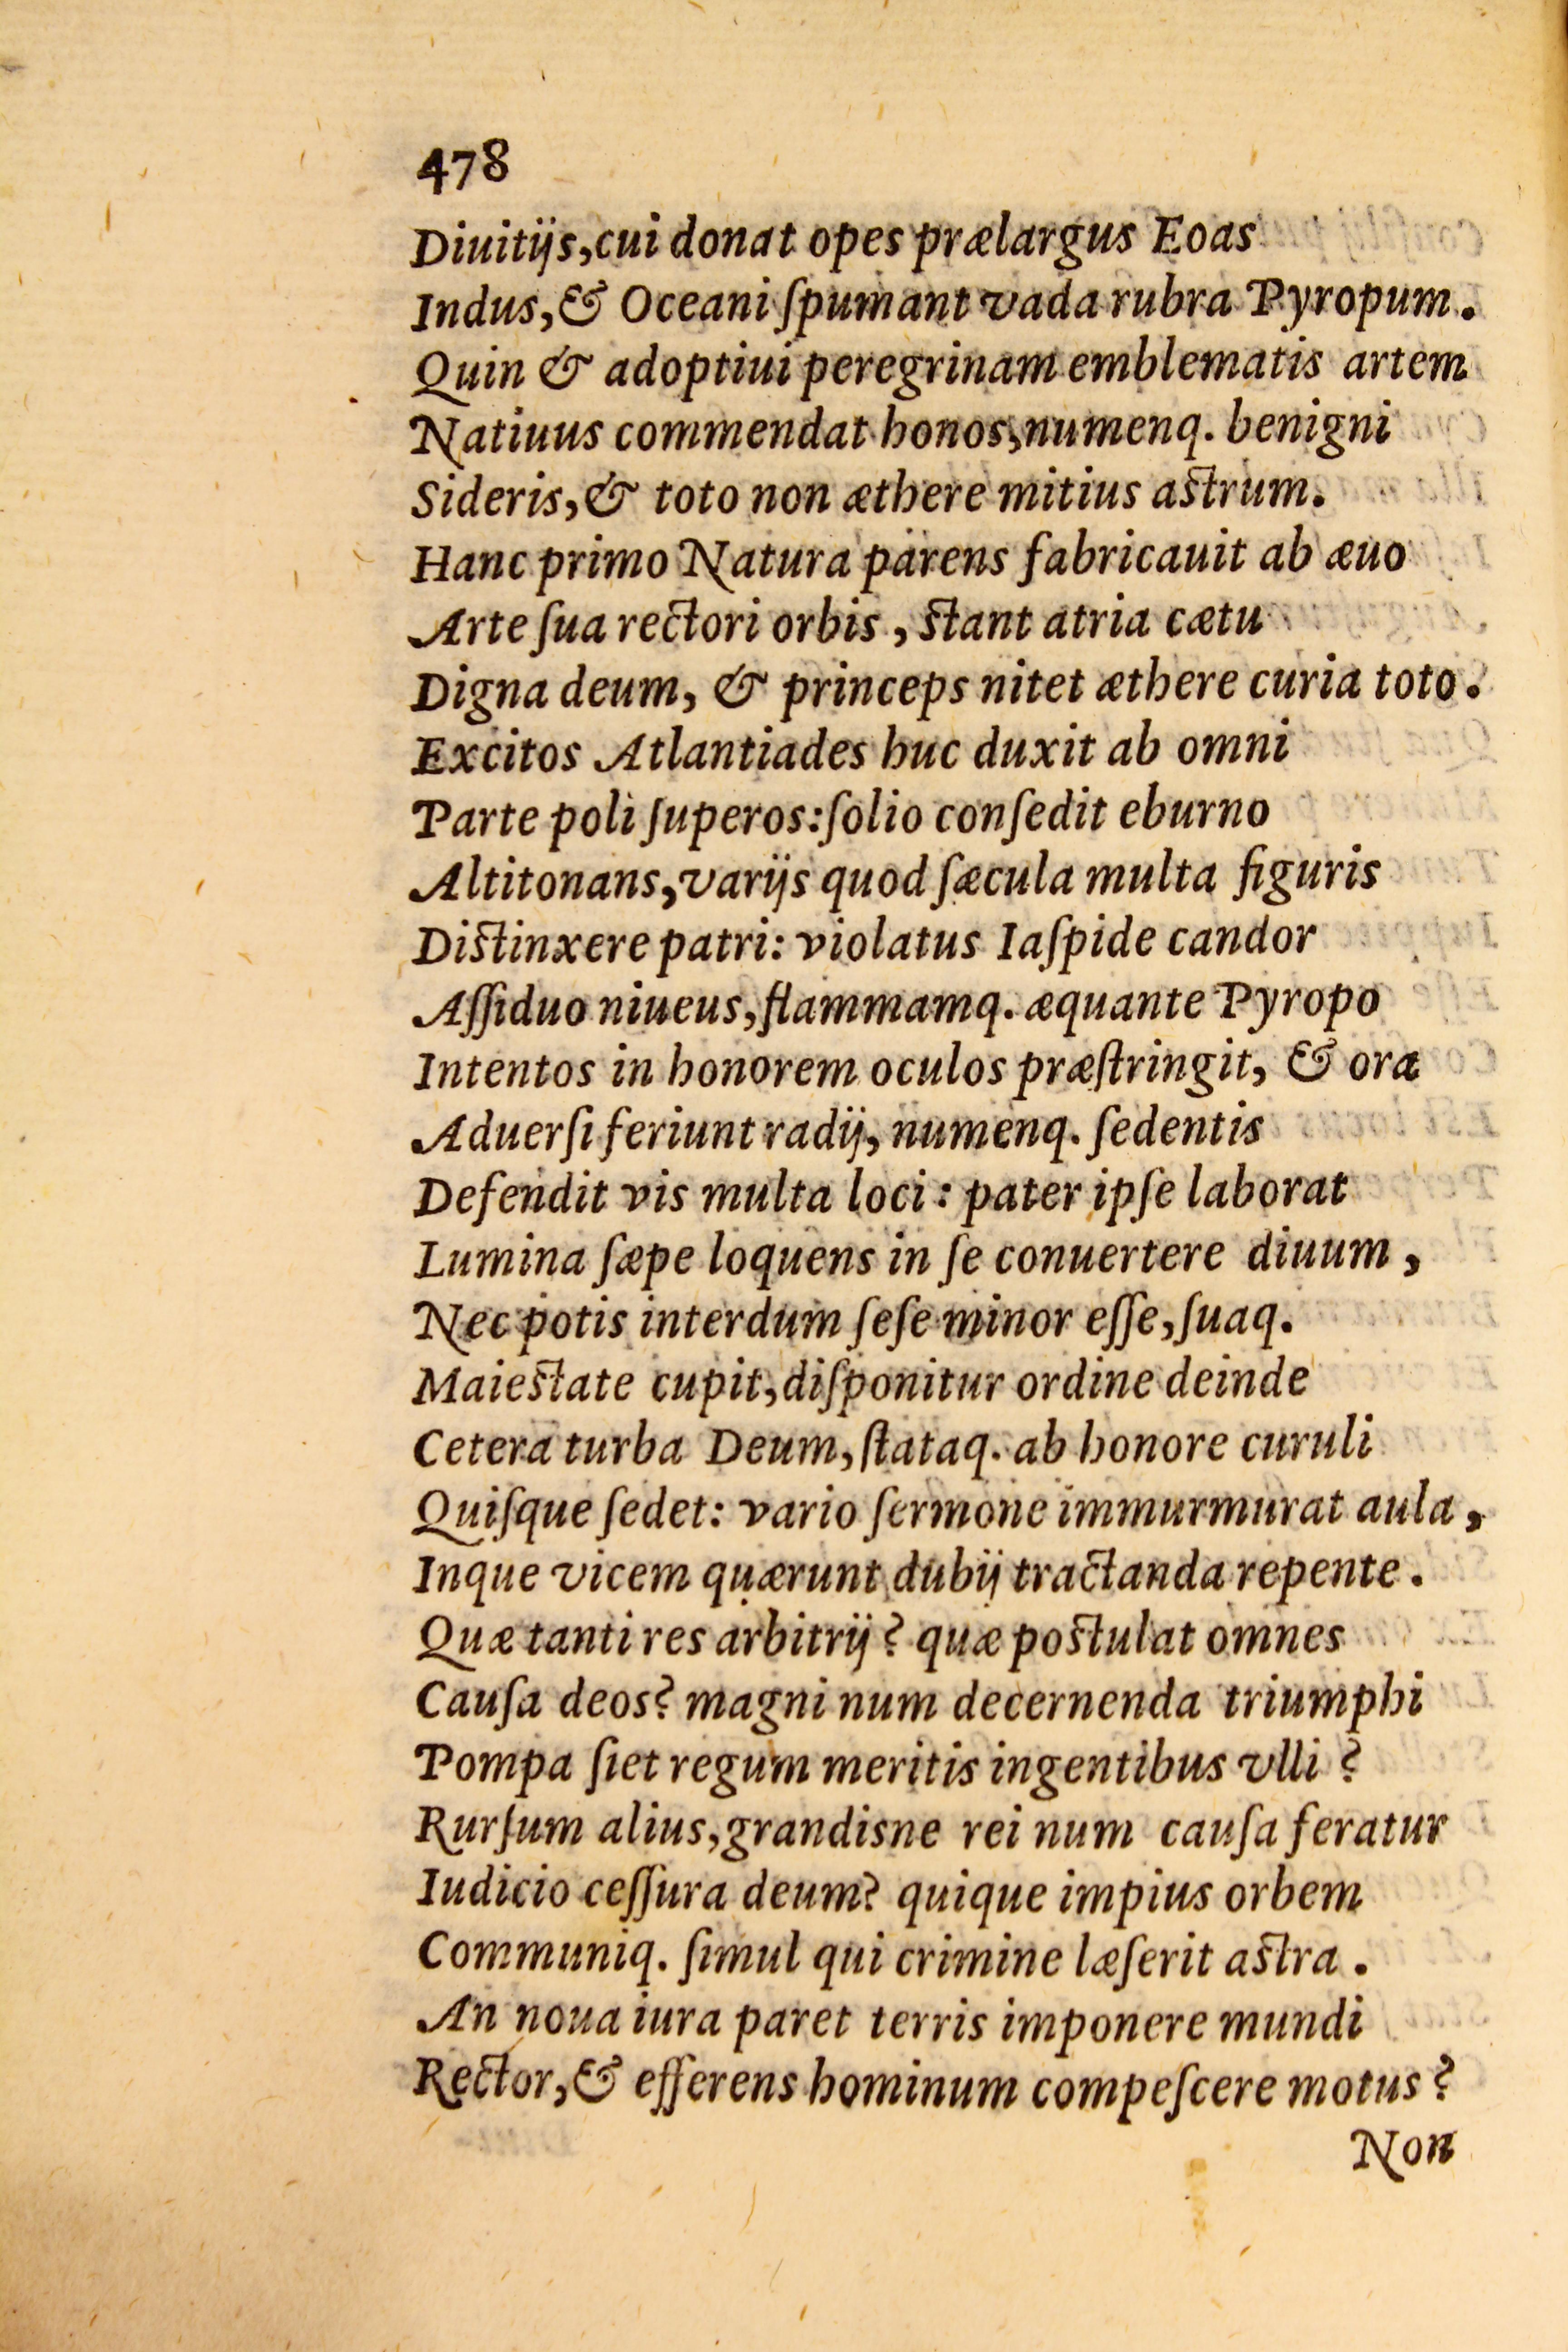 478
Diuitijs,cui donat opes prælargus Eoas
Indus,& Oceani ſpumant vada rubra Pyropum.
Quin & adoptiui peregrinam emblematis artem
Natiuus commendat honos,numenq. benigni
Sideris,& toto non æthere mitius astrum.
Hanc primo Natura parens fabricauit ab æuo
Arte ſua rectori orbis, stant atria cætu
Digna deum, & princeps nitet æthere curia toto.
Excitos Atlantiades huc duxit ab omni
Parte poli ſuperos:ſolio conſedit eburno
Altitonans,varijs quod ſæcula multa figuris
Distinxere patri: violatus Iaſpide candor
Aſſiduo niueus,flammamq. æquante Pyropo
Intentos in honorem oculos præſtringit, & ora
Aduerſi feriunt radij, numenq. ſedentis
Defendit vis multa loci: pater ipſe laborat
Lumina ſæpe loquens in ſe conuertere diuum,
Nec potis interdum ſeſe minor eſſe,ſuaq.
Maiestate cupit,diſponitur ordine deinde
Cetera turba Deum,ſtataq. ab honore curuli
Quiſque ſedet: vario ſermone immurmurat aula,
Inque vicem quærunt dubij tractanda repente.
Quæ tanti res arbitrij? quæ postulat omnes
Cauſa deos? magni num decernenda triumphi
Pompa ſiet regum meritis ingentibus vlli?
Rurſum alius,grandisne rei num cauſa feratur
Iudicio ceſſura deum? quique impius orbem
Communiq. ſimul qui crimine læſerit astra.
An noua iura paret terris imponere mundi
Rector,& efferens hominum compeſcere motus?
Non